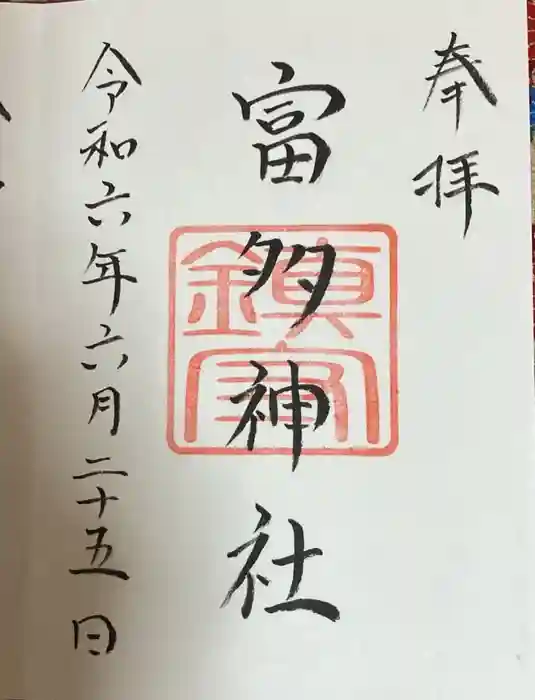 奉拝
富多神社
鎮
令和六年六月二十五日